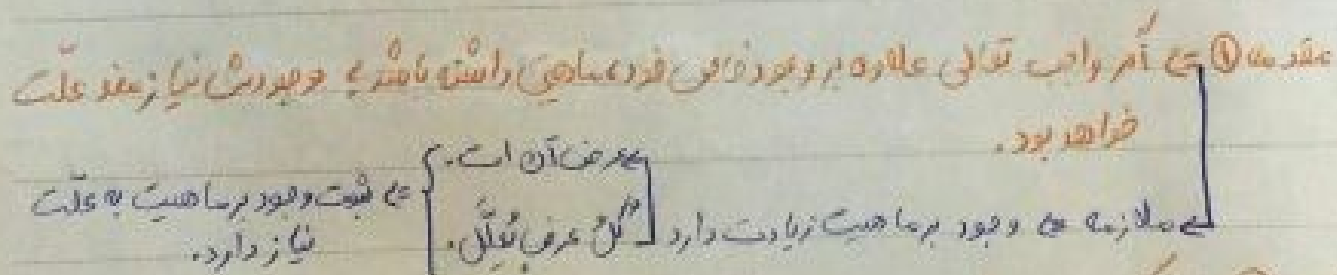 مقدمه ① ⇐ اگر واجب تعالی علاوه بر وجود خاص خود، ماهیتی داشته باشد ⇐ وجودش نیازمند علّت
خواهد بود.
⇐ ملازمه ⇐ وجود بر ماهیت زیادت دارد
عرض آن است.
کُلُّ عرضٍ مُعَلَّل.
⇐ ثبوت وجود بر ماهیت به علّت
نیاز دارد.